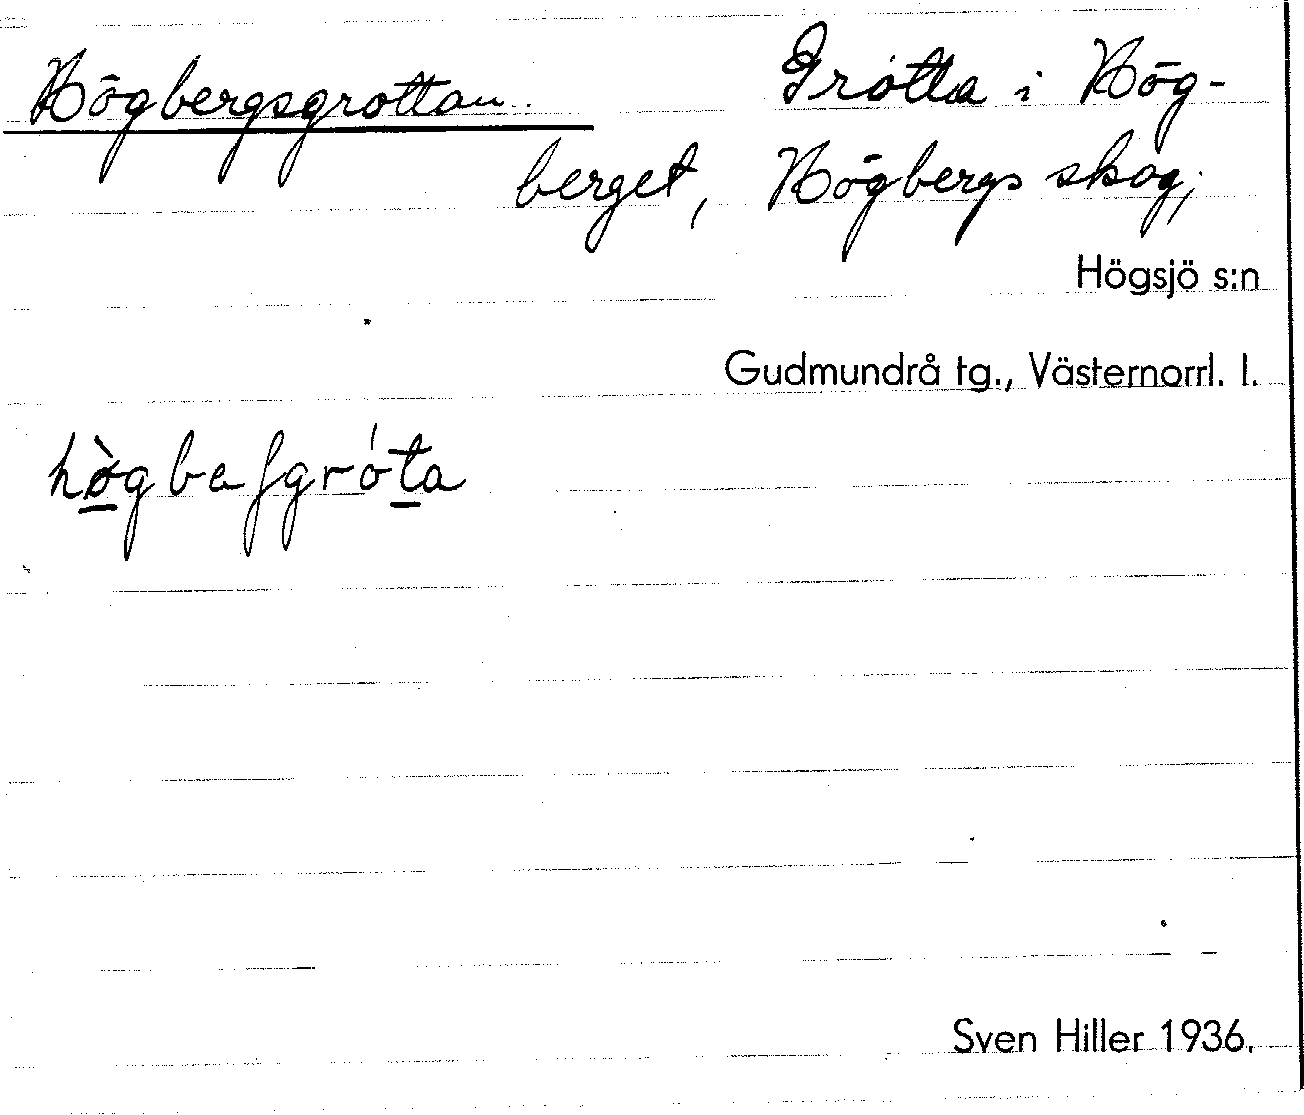 Högbergsgrottan. Grotta i Hög-
berget, Högbergs skog,
Högsjö s:n
Gudmundrå tg., Västernorrl. l.
hø̀gbaʃgróta
Sven Hiller 1936.